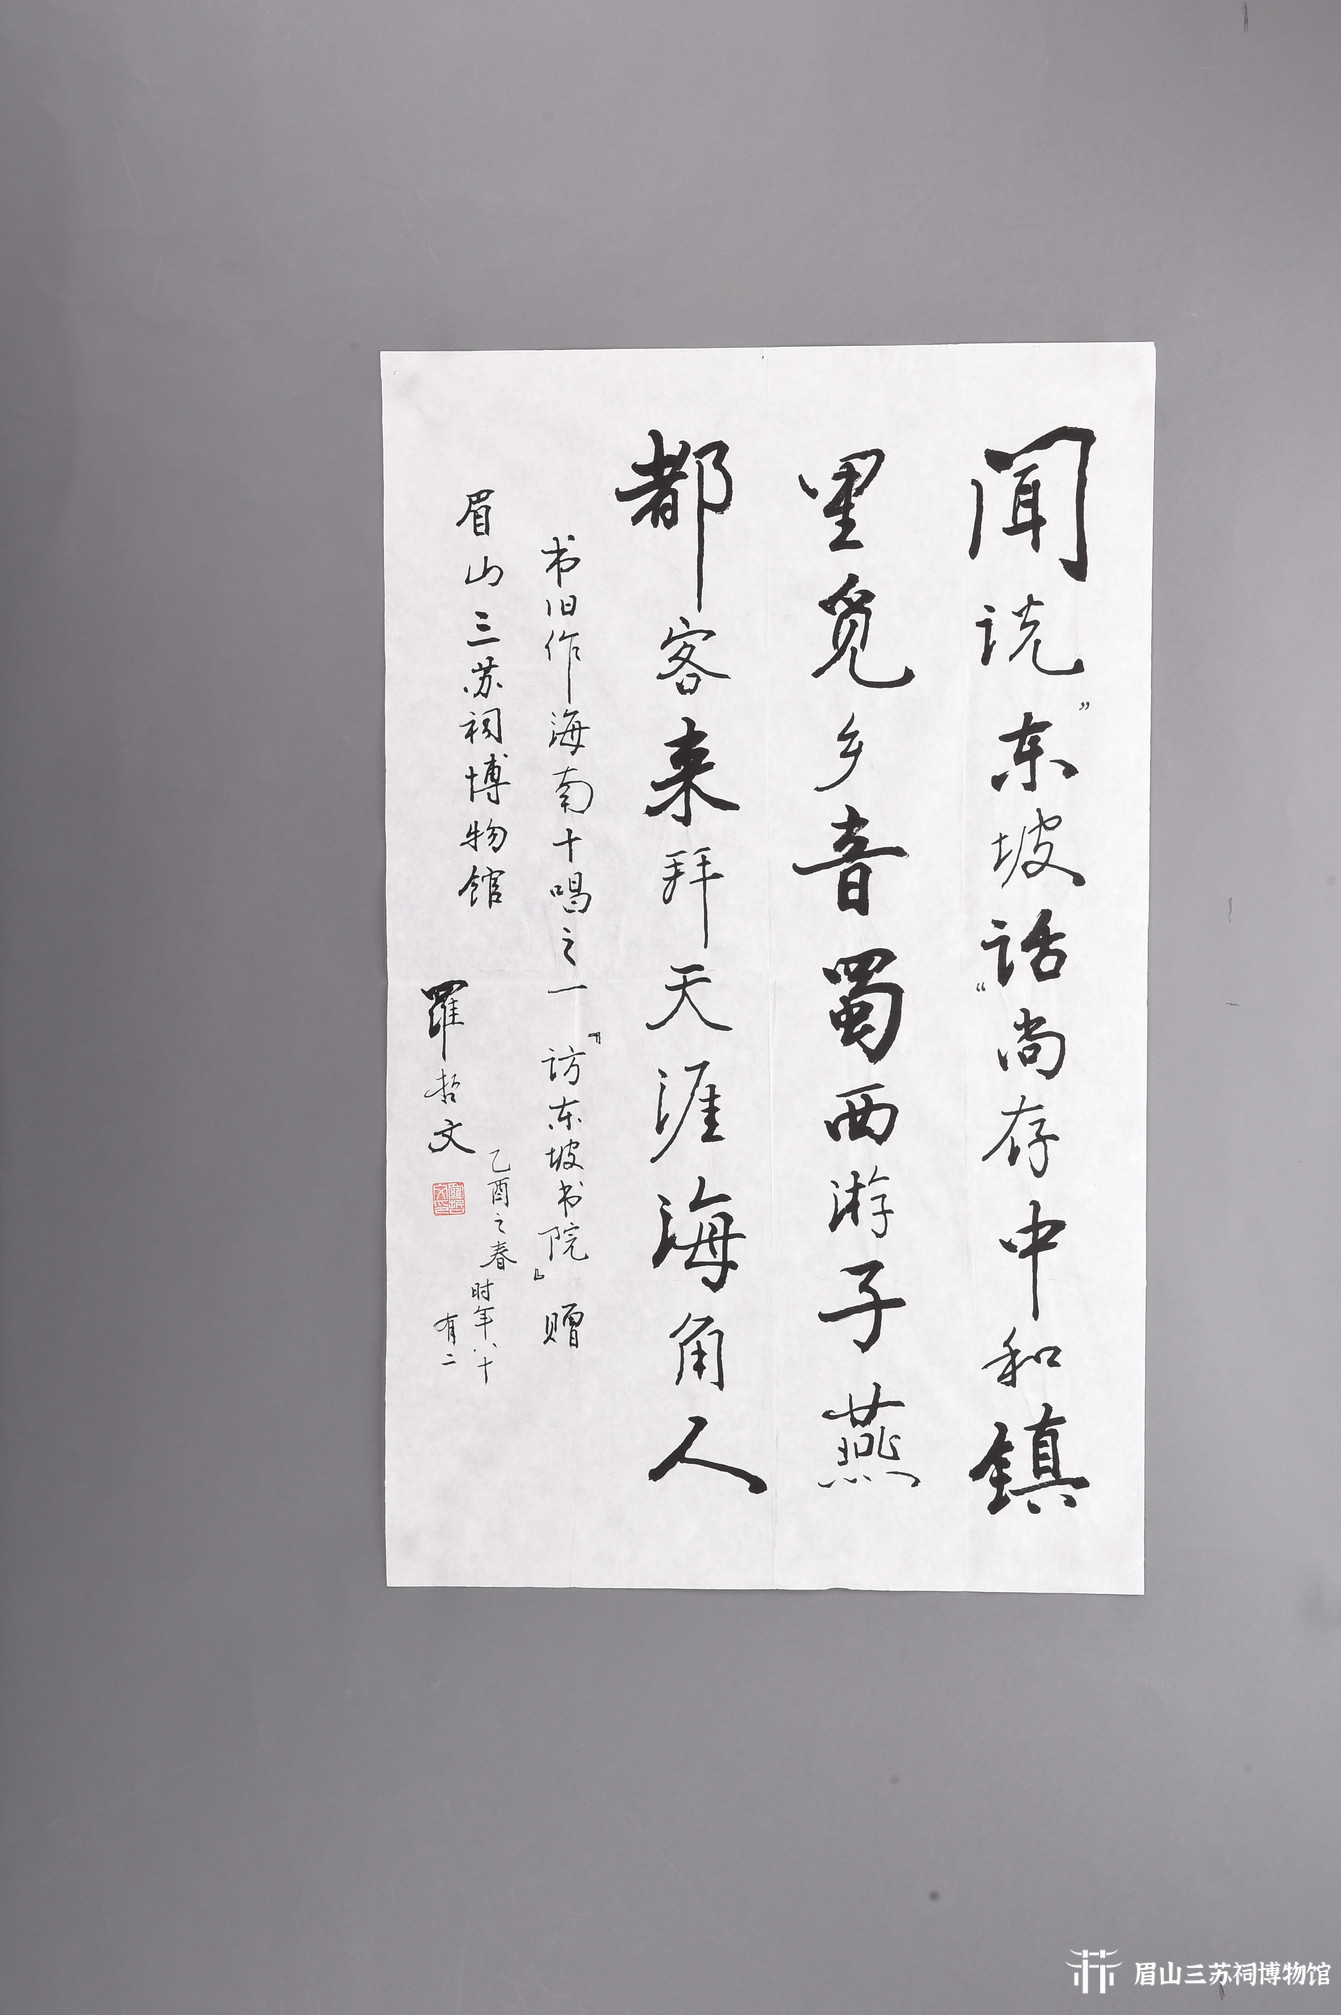 闻说”东坡话“尚存中和镇
里觅乡音蜀西游子燕
都客来拜天涯海角人
书旧作海南十唱之一『访东坡书院』赠
眉山三苏祠博物馆
羅哲文
乙酉之春时年八十
有二
眉山三苏祠博物馆